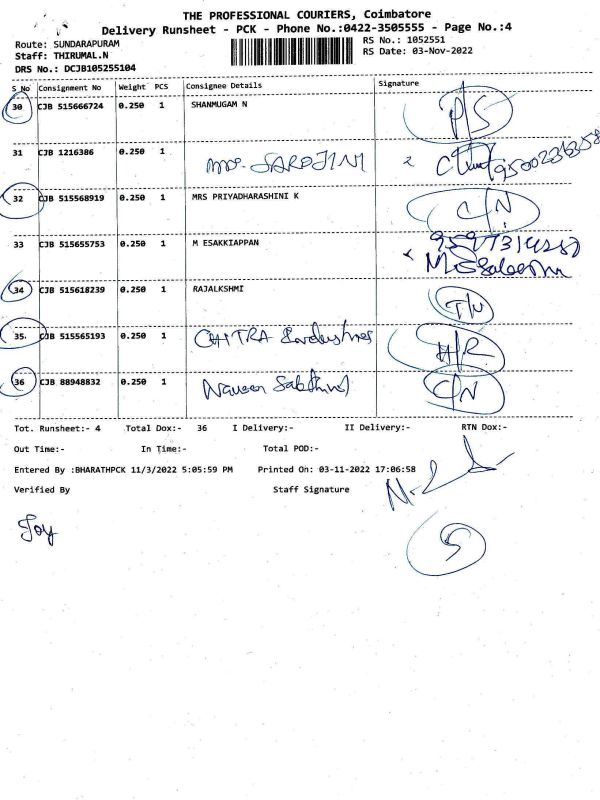 THE PROFESSIONAL COURIERS, Coimbatore
Delivery Runsheet - PCK - Phone No.:0422-3505555 - Page No.:4
Route: SUNDARAPURAM
RS No.: 1052551
Staff: THIRUMAL.N
RS Date: 03-Nov-2022
DRS No.: DCJB105255104
S No Consignment No Weight PCS Consignee Details Signature
30 CJB 515666724 0.250 1 SHANMUGAM N P/S
31 CJB 1216386 0.250 1 Mrs. SAROJINI
32 CJB 515568919 0.250 1 MRS PRIYADHARASHINI K C/N
33 CJB 515655753 0.250 1 M ESAKKIAPPAN
34 CJB 515618239 0.250 1 RAJALKSHMI
35. CJB 515565193 0.250 1 CHITRA Industries H/R
36 CJB 88948832 0.250 1 Naveen C/N
Tot. Runsheet:- 4 Total Dox:- 36 I Delivery:- II Delivery:- RTN Dox:-
Out Time:- In Time:- Total POD:-
Entered By :BHARATHPCK 11/3/2022 5:05:59 PM Printed On: 03-11-2022 17:06:58
Verified By Staff Signature
Joy
5